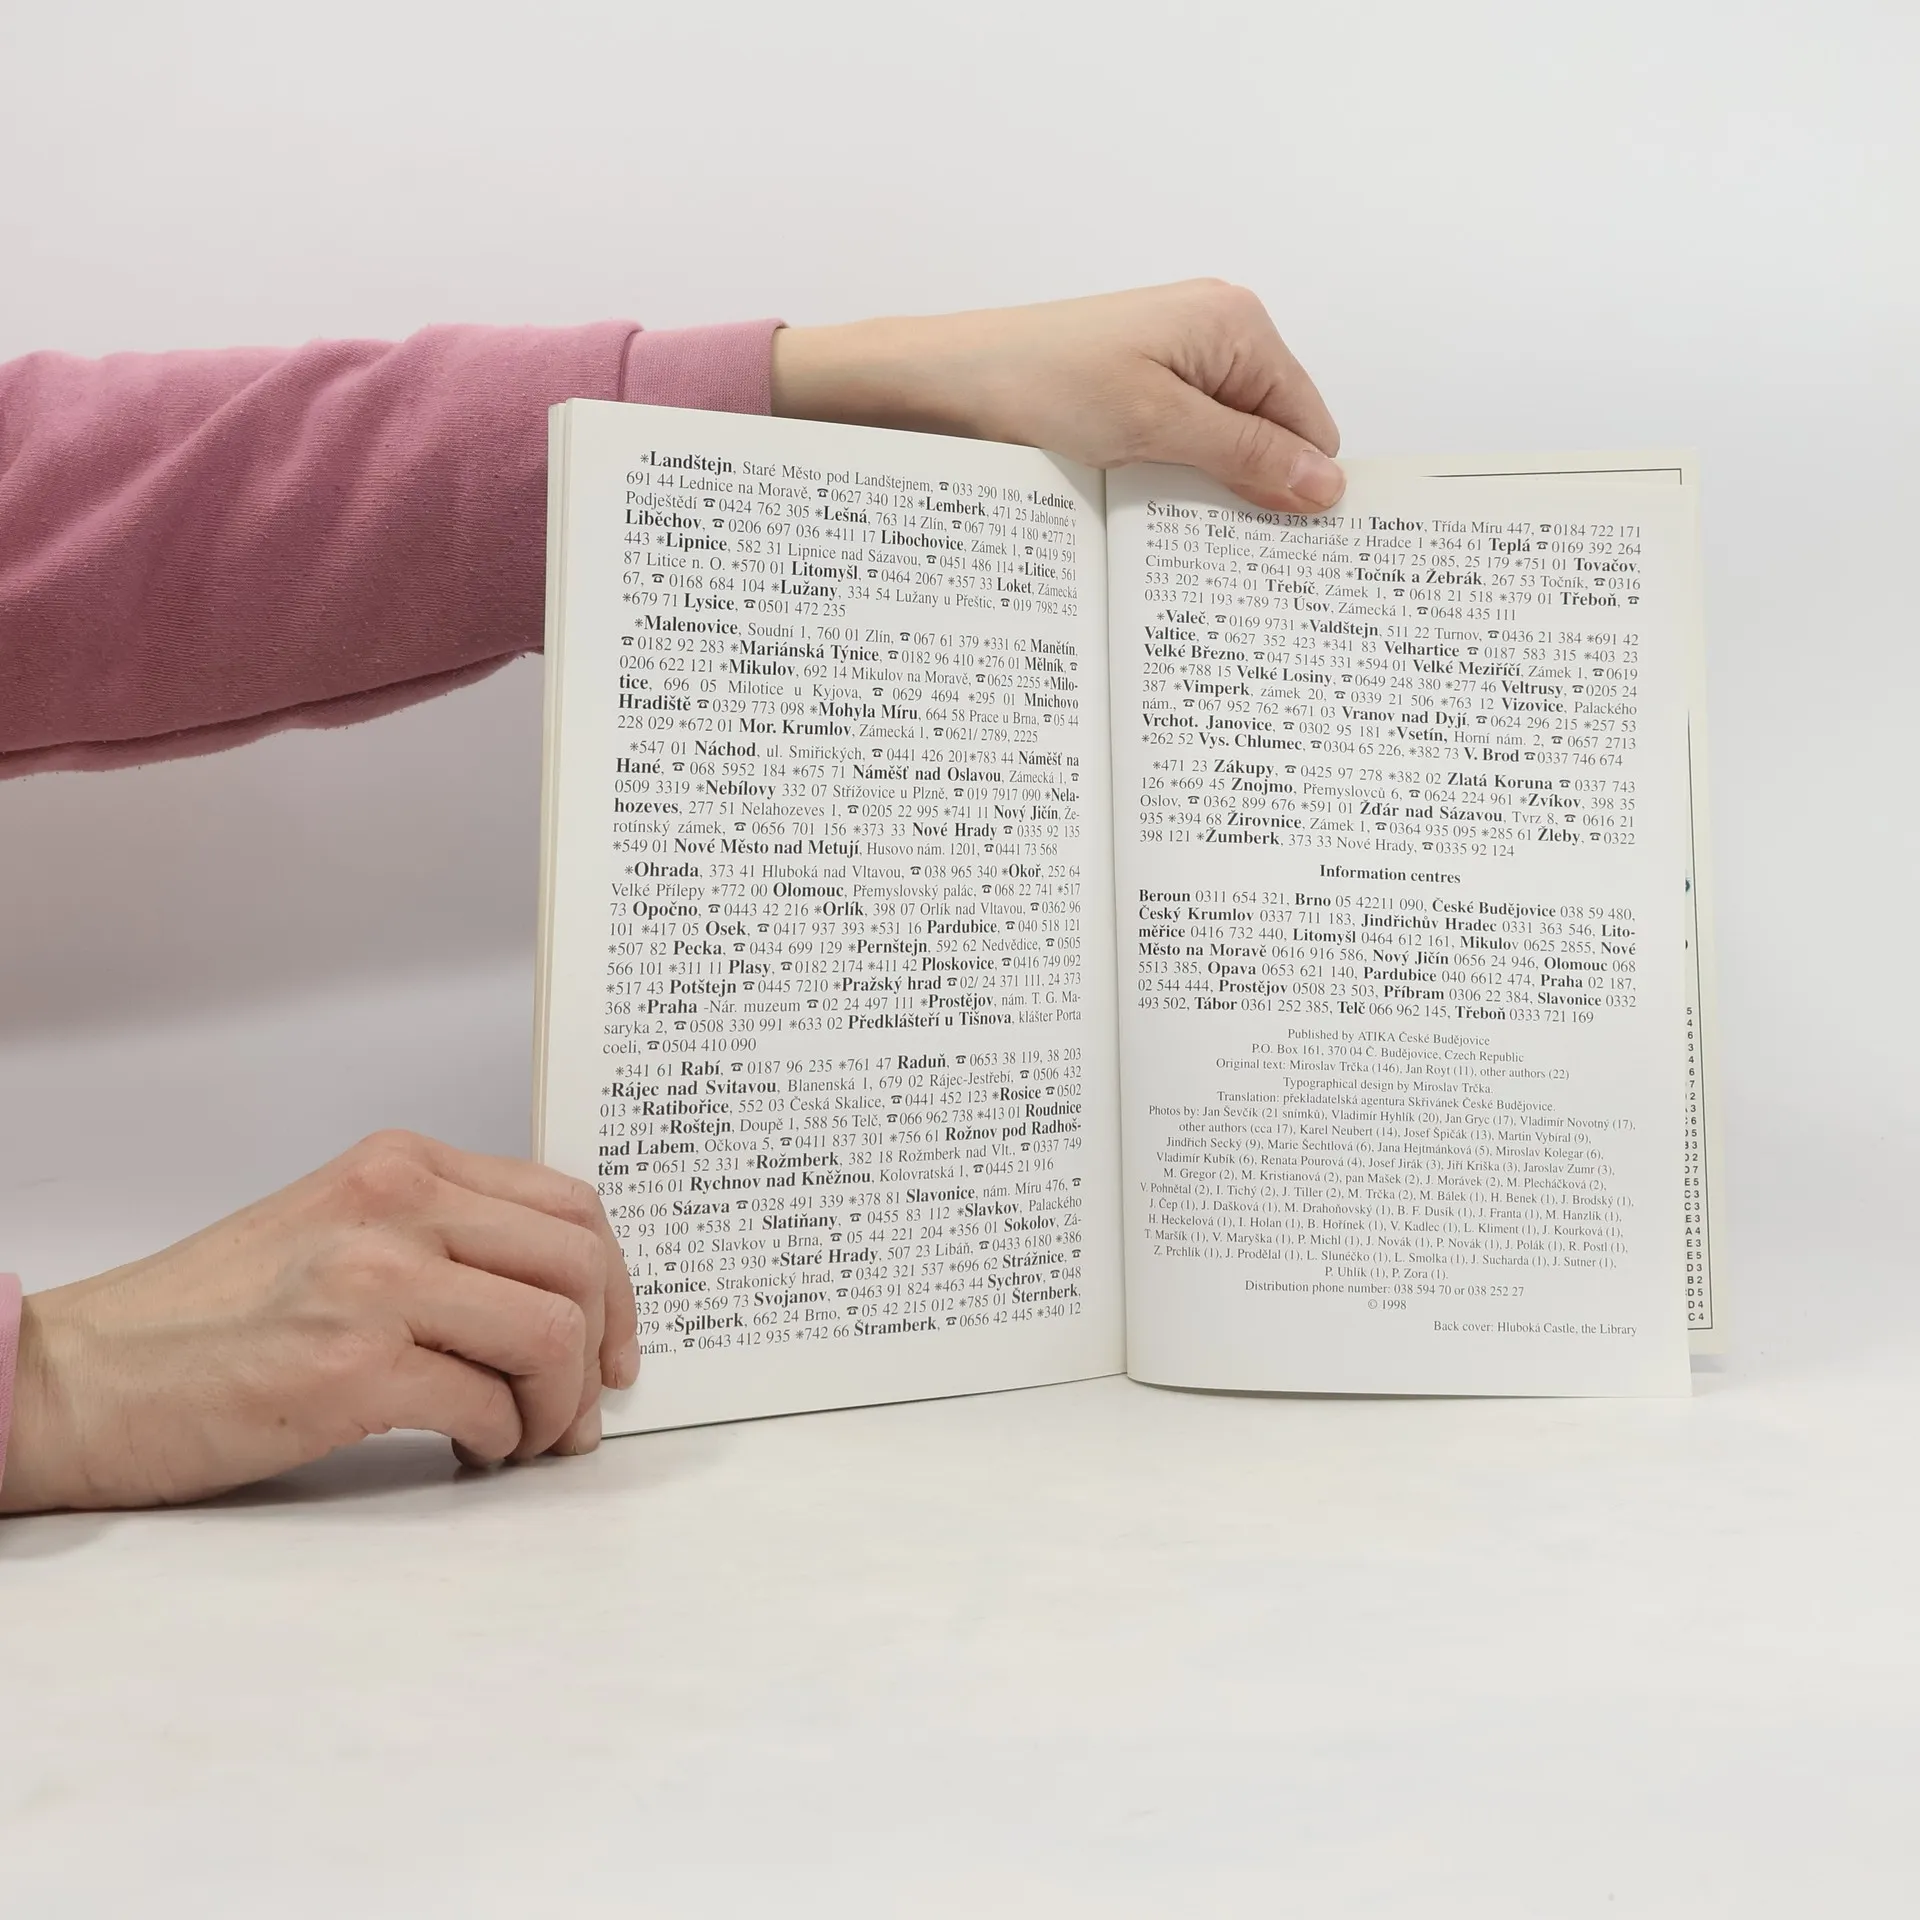 ✳Landštejn, Staré Město pod Landštejnem, ☎033 290 180, ✳Lednice,
691 44 Lednice na Moravě, ☎0627 340 128 ✳Lemberk, 471 25 Jablonné v
Podještědí ☎0424 762 305 ✳Lešná, 763 14 Zlín, ☎067 791 4 180 ✳277 21
Liběchov, ☎0206 697 036 ✳411 17 Libochovice, Zámek 1, ☎0419 591
443 ✳Lipnice, 582 31 Lipnice nad Sázavou, ☎0451 486 114 ✳Litice, 561
87 Litice n. O. ✳570 01 Litomyšl, ☎0464 2067 ✳357 33 Loket, Zámecká
67, ☎0168 684 104 ✳Lužany, 334 54 Lužany u Přeštic, ☎019 7982 452
✳679 71 Lysice, ☎0501 472 235
✳Malenovice, Soudní 1, 760 01 Zlín, ☎067 61 379 ✳331 62 Manětín,
☎0182 92 283 ✳Mariánská Týnice, ☎0182 96 410 ✳276 01 Mělník, ☎
0206 622 121 ✳Mikulov, 692 14 Mikulov na Moravě, ☎0625 2255 ✳Milo-
tice, 696 05 Milotice u Kyjova, ☎ 0629 4694 ✳295 01 Mnichovo
Hradiště ☎0329 773 098 ✳Mohyla Míru, 664 58 Prace u Brna, ☎05 44
228 029 ✳672 01 Mor. Krumlov, Zámecká 1, ☎0621/ 2789, 2225
✳547 01 Náchod, ul. Smiřických, ☎0441 426 201✳783 44 Náměšť na
Hané, ☎ 068 5952 184 ✳675 71 Náměšť nad Oslavou, Zámecká 1, ☎
0509 3319 ✳Nebílovy 332 07 Střížovice u Plzně, ☎019 7917 090 ✳Nela-
hozeves, 277 51 Nelahozeves 1, ☎0205 22 995 ✳741 11 Nový Jičín, Že-
rotínský zámek, ☎ 0656 701 156 ✳373 33 Nové Hrady ☎0335 92 135
✳549 01 Nové Město nad Metují, Husovo nám. 1201, ☎0441 73 568
✳Ohrada, 373 41 Hluboká nad Vltavou, ☎038 965 340 ✳Okoř, 252 64
Velké Přílepy ✳772 00 Olomouc, Přemyslovský palác, ☎068 22 741 ✳517
73 Opočno, ☎0443 42 216 ✳Orlík, 398 07 Orlík nad Vltavou, ☎0362 96
101 ✳417 05 Osek, ☎0417 937 393 ✳531 16 Pardubice, ☎040 518 121
✳507 82 Pecka, ☎0434 699 129 ✳Pernštejn, 592 62 Nedvědice, ☎0505
566 101 ✳311 11 Plasy, ☎0182 2174 ✳411 42 Ploskovice, ☎0416 749 092
✳517 43 Potštejn ☎0445 7210 ✳Pražský hrad ☎02/ 24 371 111, 24 373
368 ✳Praha -Nár. muzeum ☎02 24 497 111 ✳Prostějov, nám. T. G. Ma-
saryka 2, ☎0508 330 991 ✳633 02 Předklášteří u Tišnova, klášter Porta
coeli, ☎0504 410 090
✳341 61 Rabí, ☎0187 96 235 ✳761 47 Raduň, ☎0653 38 119, 38 203
✳Rájec nad Svitavou, Blanenská 1, 679 02 Rájec-Jestřebí, ☎0506 432
013 ✳Ratibořice, 552 03 Česká Skalice, ☎0441 452 123 ✳Rosice ☎0502
412 891 ✳Roštejn, Doupě 1, 588 56 Telč, ☎066 962 738 ✳413 01 Roudnice
nad Labem, Očkova 5, ☎0411 837 301 ✳756 61 Rožnov pod Radhoš-
těm ☎0651 52 331 ✳Rožmberk, 382 18 Rožmberk nad Vlt., ☎0337 749
838 ✳516 01 Rychnov nad Kněžnou, Kolovratská 1, ☎0445 21 916
✳286 06 Sázava ☎0328 491 339 ✳378 81 Slavonice, nám. Míru 476, ☎
32 93 100 ✳538 21 Slatiňany, ☎0455 83 112 ✳Slavkov, Palackého
1, 684 02 Slavkov u Brna, ☎05 44 221 204 ✳356 01 Sokolov, Zá-
ká 1, ☎0168 23 930 ✳Staré Hrady, 507 23 Libáň, ☎0433 6180 ✳386
rakonice, Strakonický hrad, ☎0342 321 537 ✳696 62 Strážnice, ☎
332 090 ✳569 73 Svojanov, ☎0463 91 824 ✳463 44 Sychrov, ☎048
079 ✳Špilberk, 662 24 Brno, ☎05 42 215 012 ✳785 01 Šternberk,
nám., ☎0643 412 935 ✳742 66 Štramberk, ☎0656 42 445 ✳340 12
Švihov, ☎0186 693 378 ✳347 11 Tachov, Třída Míru 447, ☎0184 722 171
✳588 56 Telč, nám. Zachariáše z Hradce 1 ✳364 61 Teplá ☎0169 392 264
✳415 03 Teplice, Zámecké nám. ☎0417 25 085, 25 179 ✳751 01 Tovačov,
Cimburkova 2, ☎0641 93 408 ✳Točník a Žebrák, 267 53 Točník, ☎0316
533 202 ✳674 01 Třebíč, Zámek 1, ☎0618 21 518 ✳379 01 Třeboň, ☎
0333 721 193 ✳789 73 Úsov, Zámecká 1, ☎0648 435 111
✳Valeč, ☎0169 9731 ✳Valdštejn, 511 22 Turnov, ☎0436 21 384 ✳691 42
Valtice, ☎ 0627 352 423 ✳341 83 Velhartice ☎ 0187 583 315 ✳403 23
Velké Březno, ☎047 5145 331 ✳594 01 Velké Meziříčí, Zámek 1, ☎0619
2206 ✳788 15 Velké Losiny, ☎0649 248 380 ✳277 46 Veltrusy, ☎0205 24
387 ✳Vimperk, zámek 20, ☎ 0339 21 506 ✳763 12 Vizovice, Palackého
nám., ☎ 067 952 762 ✳671 03 Vranov nad Dyjí, ☎0624 296 215 ✳257 53
Vrchot. Janovice, ☎ 0302 95 181 ✳Vsetín, Horní nám. 2, ☎ 0657 2713
✳262 52 Vys. Chlumec, ☎0304 65 226, ✳382 73 V. Brod ☎0337 746 674
✳471 23 Zákupy, ☎ 0425 97 278 ✳382 02 Zlatá Koruna ☎ 0337 743
126 ✳669 45 Znojmo, Přemyslovců 6, ☎ 0624 224 961 ✳Zvíkov, 398 35
Oslov, ☎ 0362 899 676 ✳591 01 Žďár nad Sázavou, Tvrz 8, ☎ 0616 21
935 ✳394 68 Žirovnice, Zámek 1, ☎0364 935 095 ✳285 61 Žleby, ☎0322
398 121 ✳Žumberk, 373 33 Nové Hrady, ☎0335 92 124
Information centres
Beroun 0311 654 321, Brno 05 42211 090, České Budějovice 038 59 480,
Český Krumlov 0337 711 183, Jindřichův Hradec 0331 363 546, Lito-
měřice 0416 732 440, Litomyšl 0464 612 161, Mikulov 0625 2855, Nové
Město na Moravě 0616 916 586, Nový Jičín 0656 24 946, Olomouc 068
5513 385, Opava 0653 621 140, Pardubice 040 6612 474, Praha 02 187,
02 544 444, Prostějov 0508 23 503, Příbram 0306 22 384, Slavonice 0332
493 502, Tábor 0361 252 385, Telč 066 962 145, Třeboň 0333 721 169
Published by ATIKA České Budějovice
P.O. Box 161, 370 04 Č. Budějovice, Czech Republic
Original text: Miroslav Trčka (146), Jan Royt (11), other authors (22)
Typographical design by Miroslav Trčka.
Translation: překladatelská agentura Skřivánek České Budějovice.
Photos by: Jan Ševčík (21 snímků), Vladimír Hyhlík (20), Jan Gryc (17), Vladimír Novotný (17),
other authors (cca 17), Karel Neubert (14), Josef Špičák (13), Martin Vybíral (9),
Jindřich Secký (9), Marie Šechtlová (6), Jana Hejtmánková (5), Miroslav Kolegar (6),
Vladimír Kubík (6), Renata Pourová (4), Josef Jirák (3), Jiří Kriška (3), Jaroslav Zumr (3),
M. Gregor (2), M. Kristianová (2), pan Mašek (2), J. Morávek (2), M. Plecháčková (2),
V. Pohnětal (2), I. Tichý (2), J. Tiller (2), M. Trčka (2), M. Bálek (1), H. Benek (1), J. Brodský (1),
J. Čep (1), J. Dašková (1), M. Drahoňovský (1), B. F. Dusík (1), J. Franta (1), M. Hanzlík (1),
H. Heckelová (1), I. Holan (1), B. Hořínek (1), V. Kadlec (1), L. Kliment (1), J. Kourková (1),
T. Maršík (1), V. Maryška (1), P. Michl (1), J. Novák (1), P. Novák (1), J. Polák (1), R. Postl (1),
Z. Prchlík (1), J. Prodělal (1), L. Slunéčko (1), L. Smolka (1), J. Sucharda (1), J. Sutner (1),
P. Uhlík (1), P. Zora (1).
Distribution phone number: 038 594 70 or 038 252 27
© 1998
Back cover: Hluboká Castle, the Library
5
4
6
3
4
6
7
2
3
6
D 5
3
D 2
7
E 5
C 3
C 3
E 3
A 4
E 3
E 5
D 3
B 2
D 5
D 4
C 4